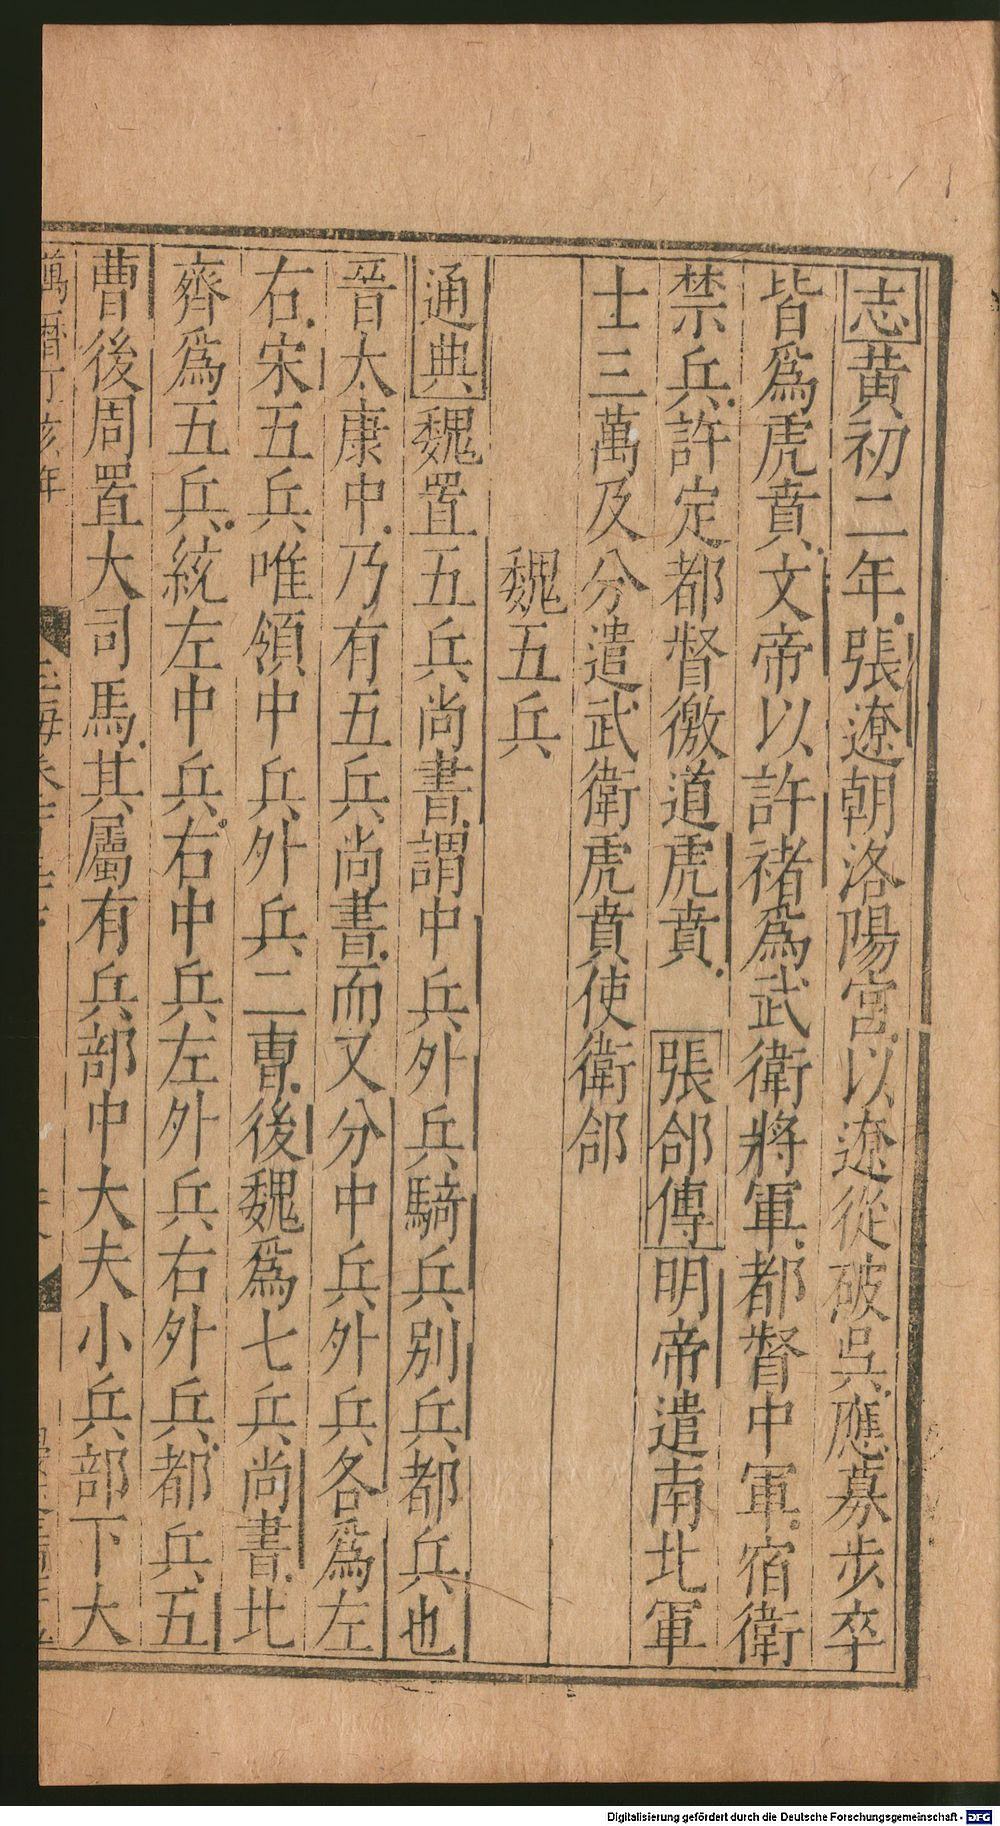 志黃初二年張遼朝洛陽宮以遼從破吳應募步卒
皆爲虎賁文帝以許褚爲武衛將軍都督中軍宿衛
禁兵許定都督徼道虎賁 張郃傳明帝遣南北軍
士三萬及分遣武衛虎賁使衛郃
魏五兵
通典魏置五兵尚書謂中兵外兵騎兵別兵都兵也
晉太康中乃有五兵尚書而又分中兵外兵各爲左
右宋五兵唯領中兵外兵二曹後魏爲七兵尚書北
齊爲五兵統左中兵右中兵左外兵右外兵都兵五
曹後周置大司馬其屬有兵部中大夫小兵部下大
萬曆丁亥年
Digitalisierung gefördert durch die Deutsche Forschungsgemeinschaft - DFG